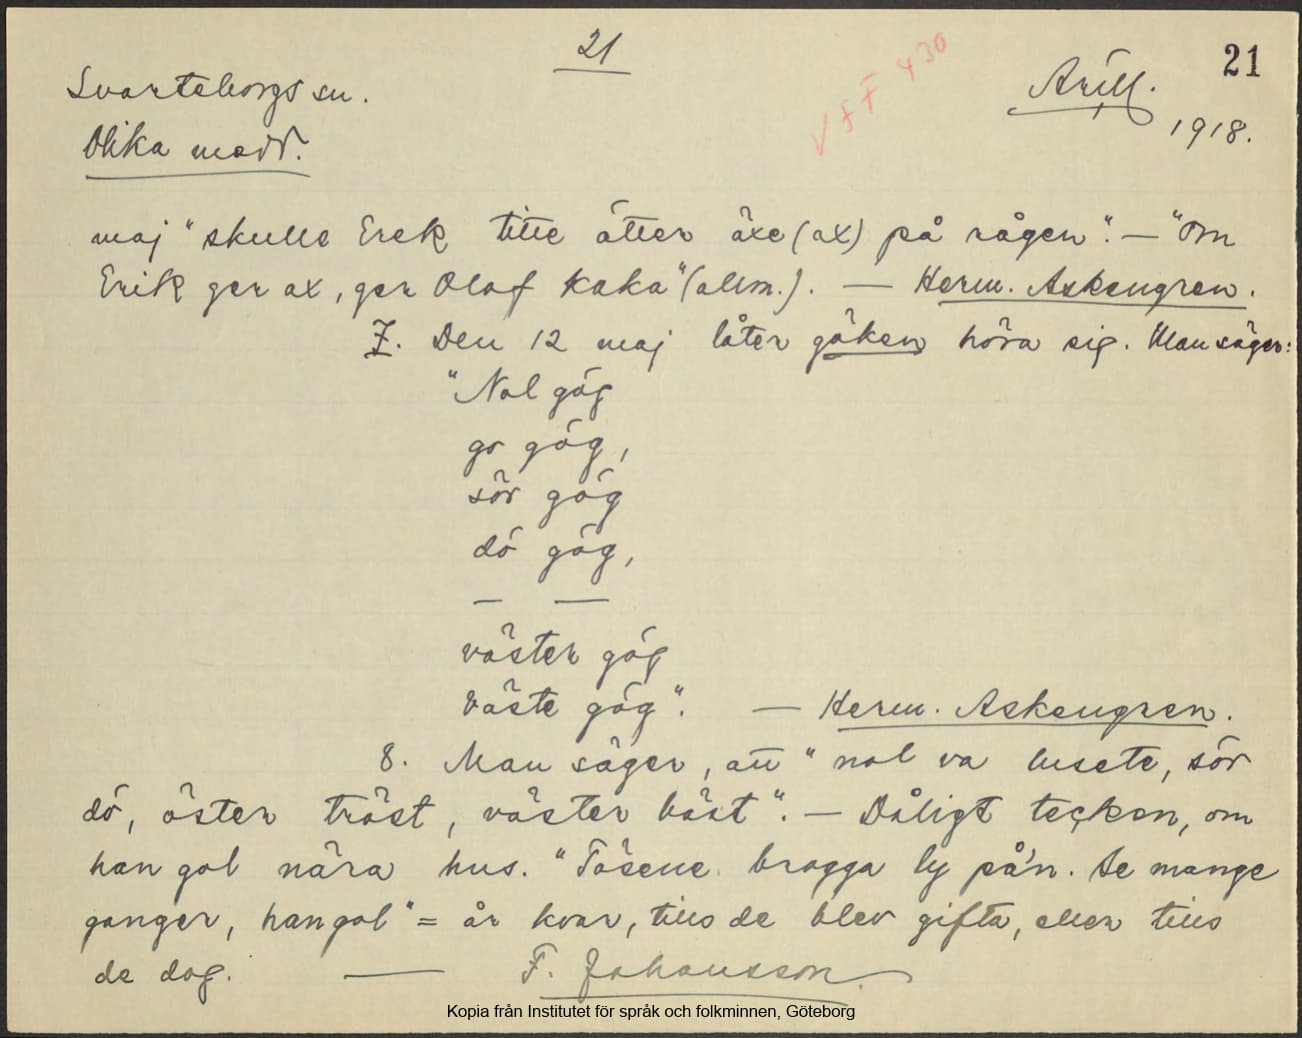 21
21
Svarteborgs sn.
VFF 430
Arill.
1918.
Olika medd.
maj "skulle Erek titte ätter äxe (ax) på rågen". — "Om
Erik ger ax, ger Olof kaka" (allm.). — Herm. Askengren.
7. Den 12 maj låter göken höra sig. Man säger:
"Nol gög
go gög,
sör gög
dö gög,
— —
väster gög
bäste gög". — Herm. Askengren.
8. Man säger, att "nol va lusete, sör
dö, öster tröst, väster bäst". — Dåligt tecken, om
han gol nära hus. "Tösene bragga ly på'n. Se mange
ganger, han gol" = år kvar, tills de blev gifta, eller tills
de dog. — F. Johansson.
Kopia från Institutet för språk och folkminnen, Göteborg